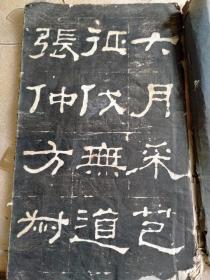 六月采芑
征伐無道
張仲方叔